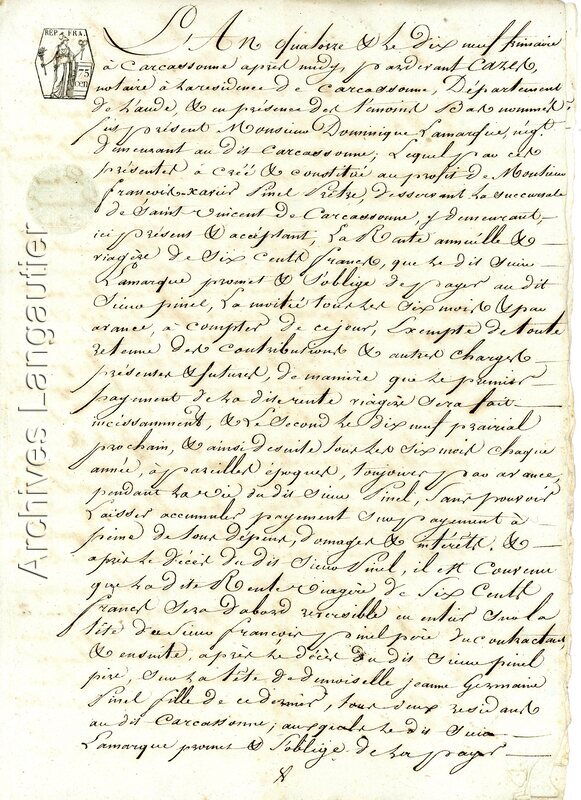 REP. FRA.
75
CEN
L'An quatorze & Le dix neuf frimaire
à Carcassonne après midy, pardevant Cazes,
notaire à la residence de Carcassonne, Département
de L'aude, & en présence des témoins Bas nommés
fut présent Monsieur Dominique Lamarque, negt.
demeurant au dit Carcassonne; Lequel par ces
présentes a créé & constitué au profit de Monsieur
françois-xavier Pinel Prêtre, desservant la succursale
de Saint Vincent de Carcassonne, y demeurant,
ici présent & acceptant, La Rente annuelle &
viagère de Six Cents francs, que le dit Sieur
Lamarque promet & s'oblige de payer au dit
Sieur pinel, La moitié tous les six mois & par
avance, à compter de ce jour, Exempte de toute
retenue des contributions & autres charges
présentes & futures, de manière que le premier
payement de la dite rente viagère sera fait
incessamment, & le Second le dix neuf prairial
prochain, & ainsi de suite tous les six mois chaque
année, à pareilles époques, toujours par avance,
pendant la vie du dit Sieur Pinel, sans pouvoir
Laisser accumuler payement sur payement à
peine de tous dépens, domages & intérêts. &
après le décès du dit Sieur Pinel, il est Convenu
que la dite Rente viagère de Six Cents
francs sera d'abord reversible en entier sur la
tête de Sieur françois pinel père du contractant
& ensuite, après le décès du dit Sieur pinel
père, sur la tête de demoiselle jeanne Germaine
Pinel fille de ce dernier, tous deux residans
au dit Carcassonne; auxquels le dit Sieur
Lamarque promet & s'oblige de la payer
Archives Langautier